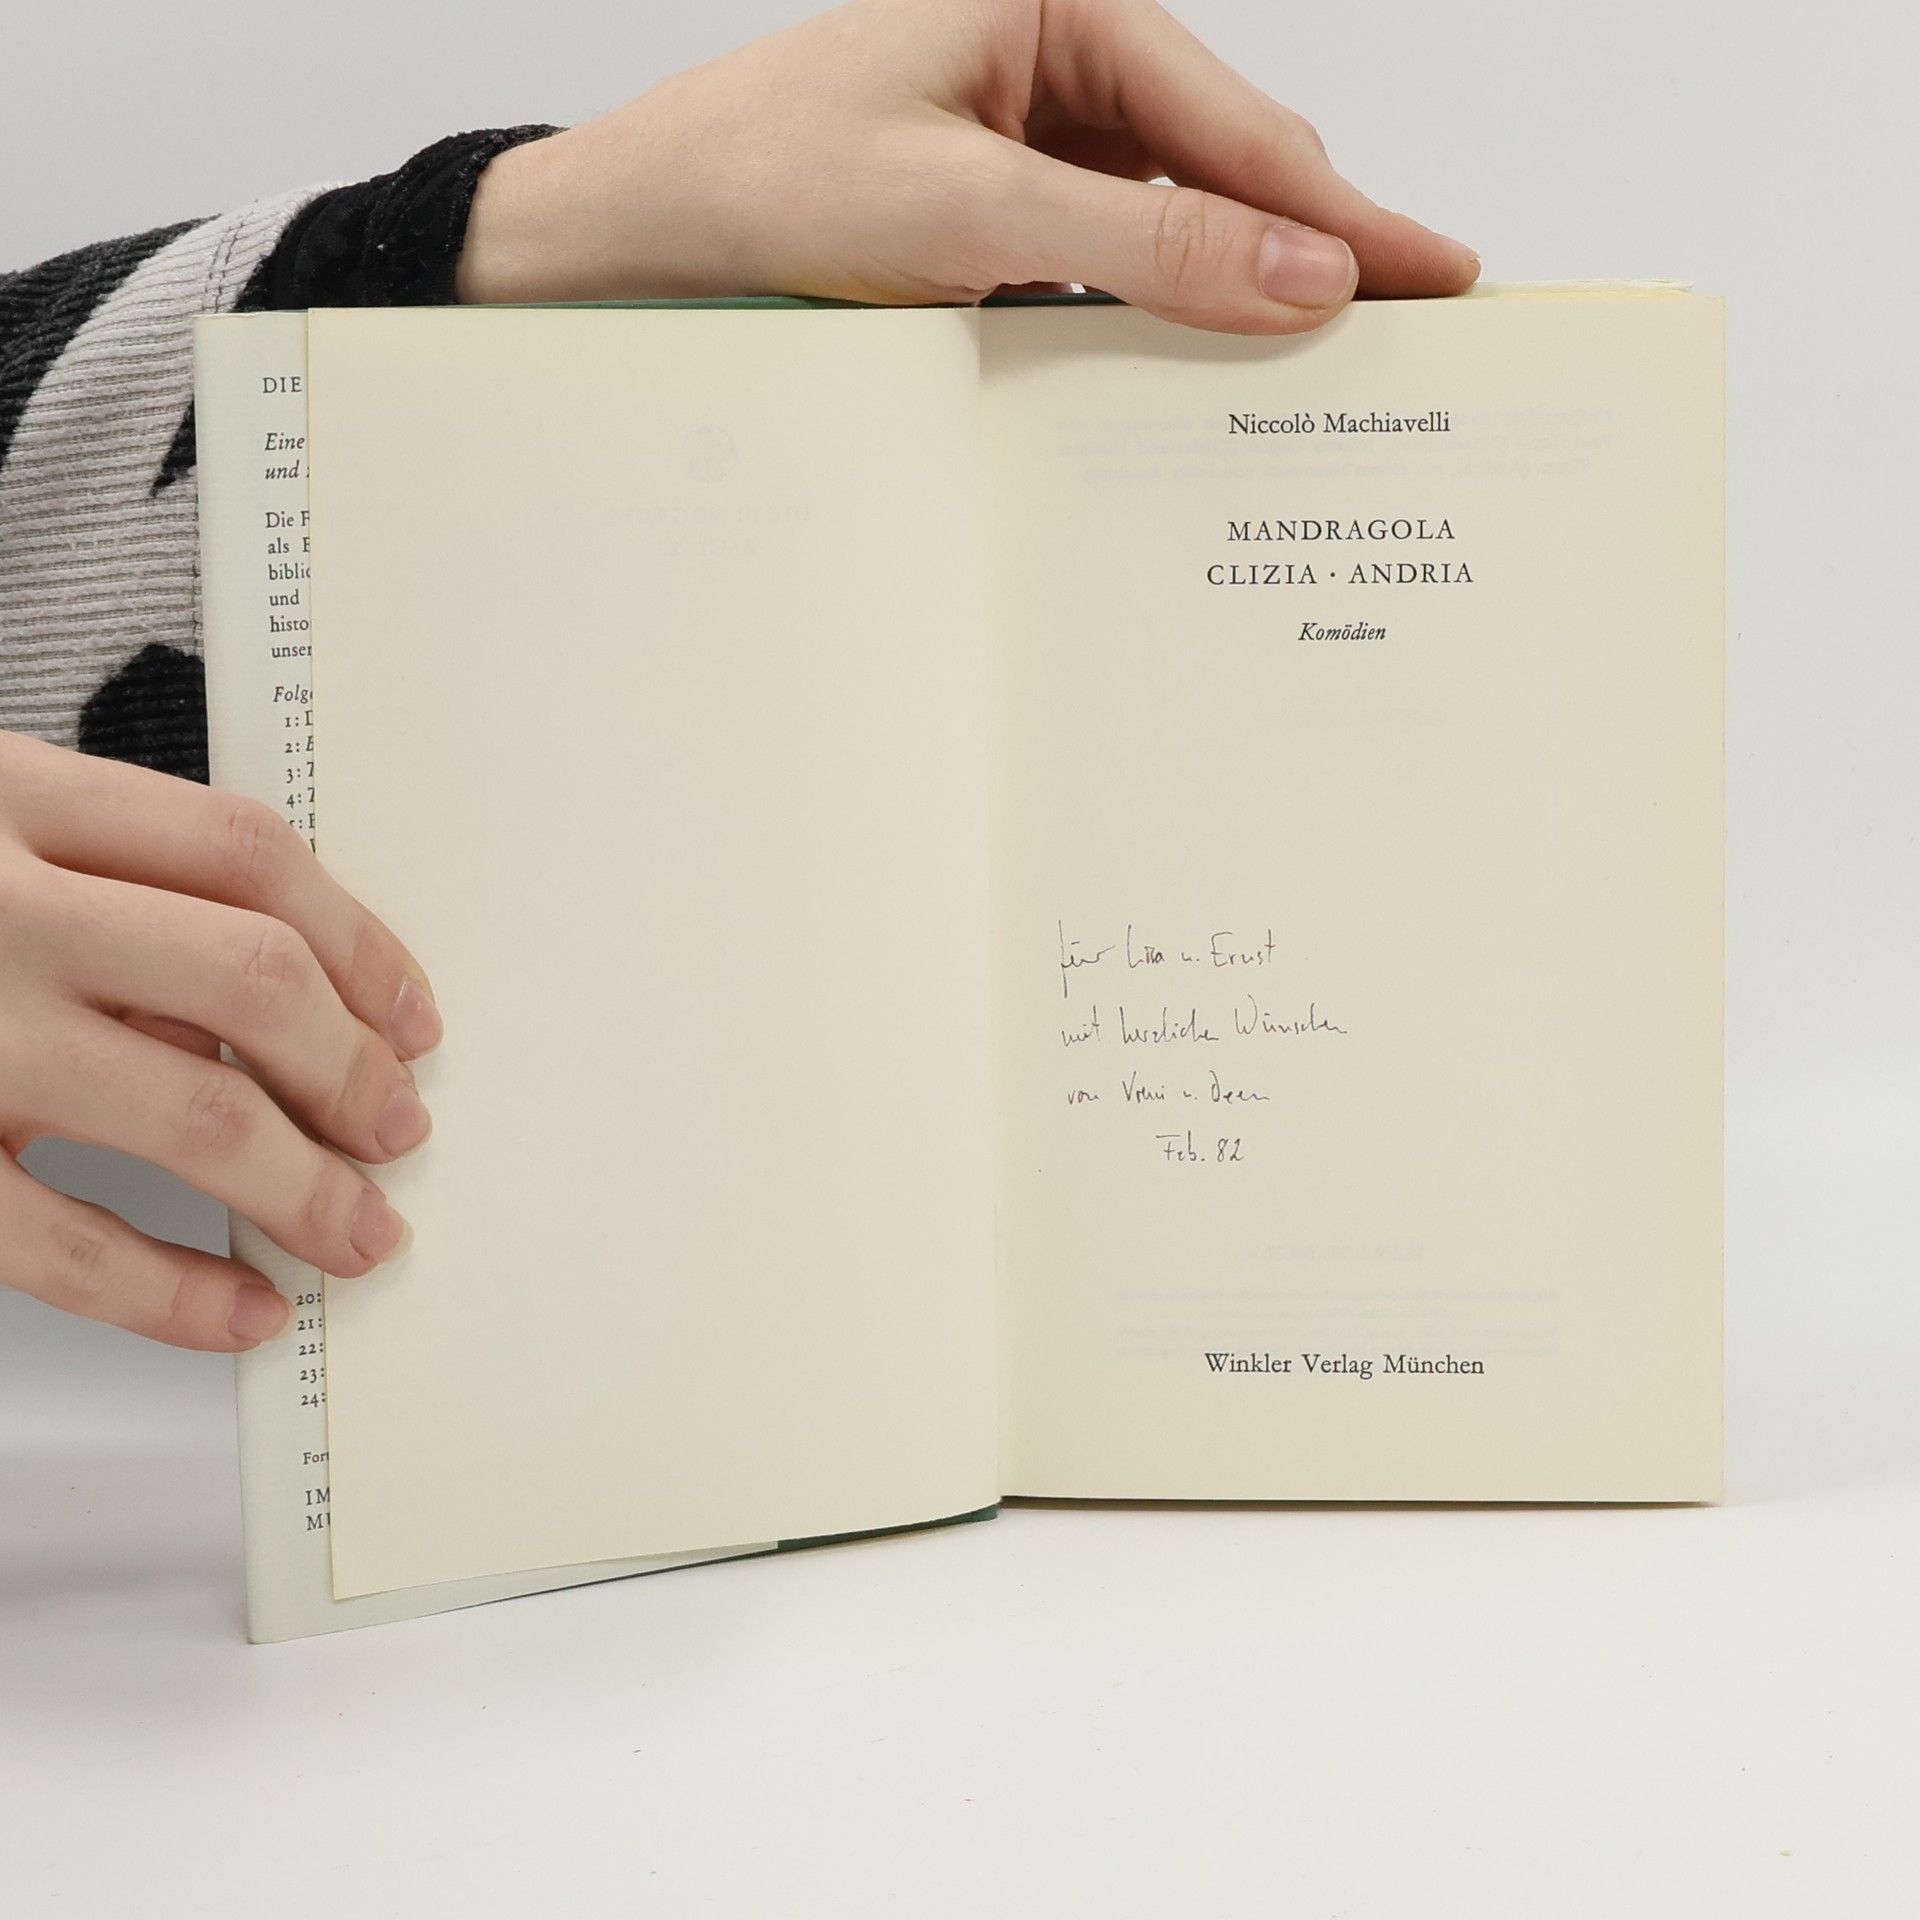 DIE
Eine
und
Die F
als E
biblio
und
histo
unser
Folge
1: D
2: E
3: T
4: T
5: E
20:
21:
22:
23:
24:
Fort
IM
MÜ
Niccolò Machiavelli
MANDRAGOLA
CLIZIA · ANDRIA
Komödien
für Lisa u. Ernst
mit herzlichen Wünschen
von Vreni u.
Feb. 82
Winkler Verlag München